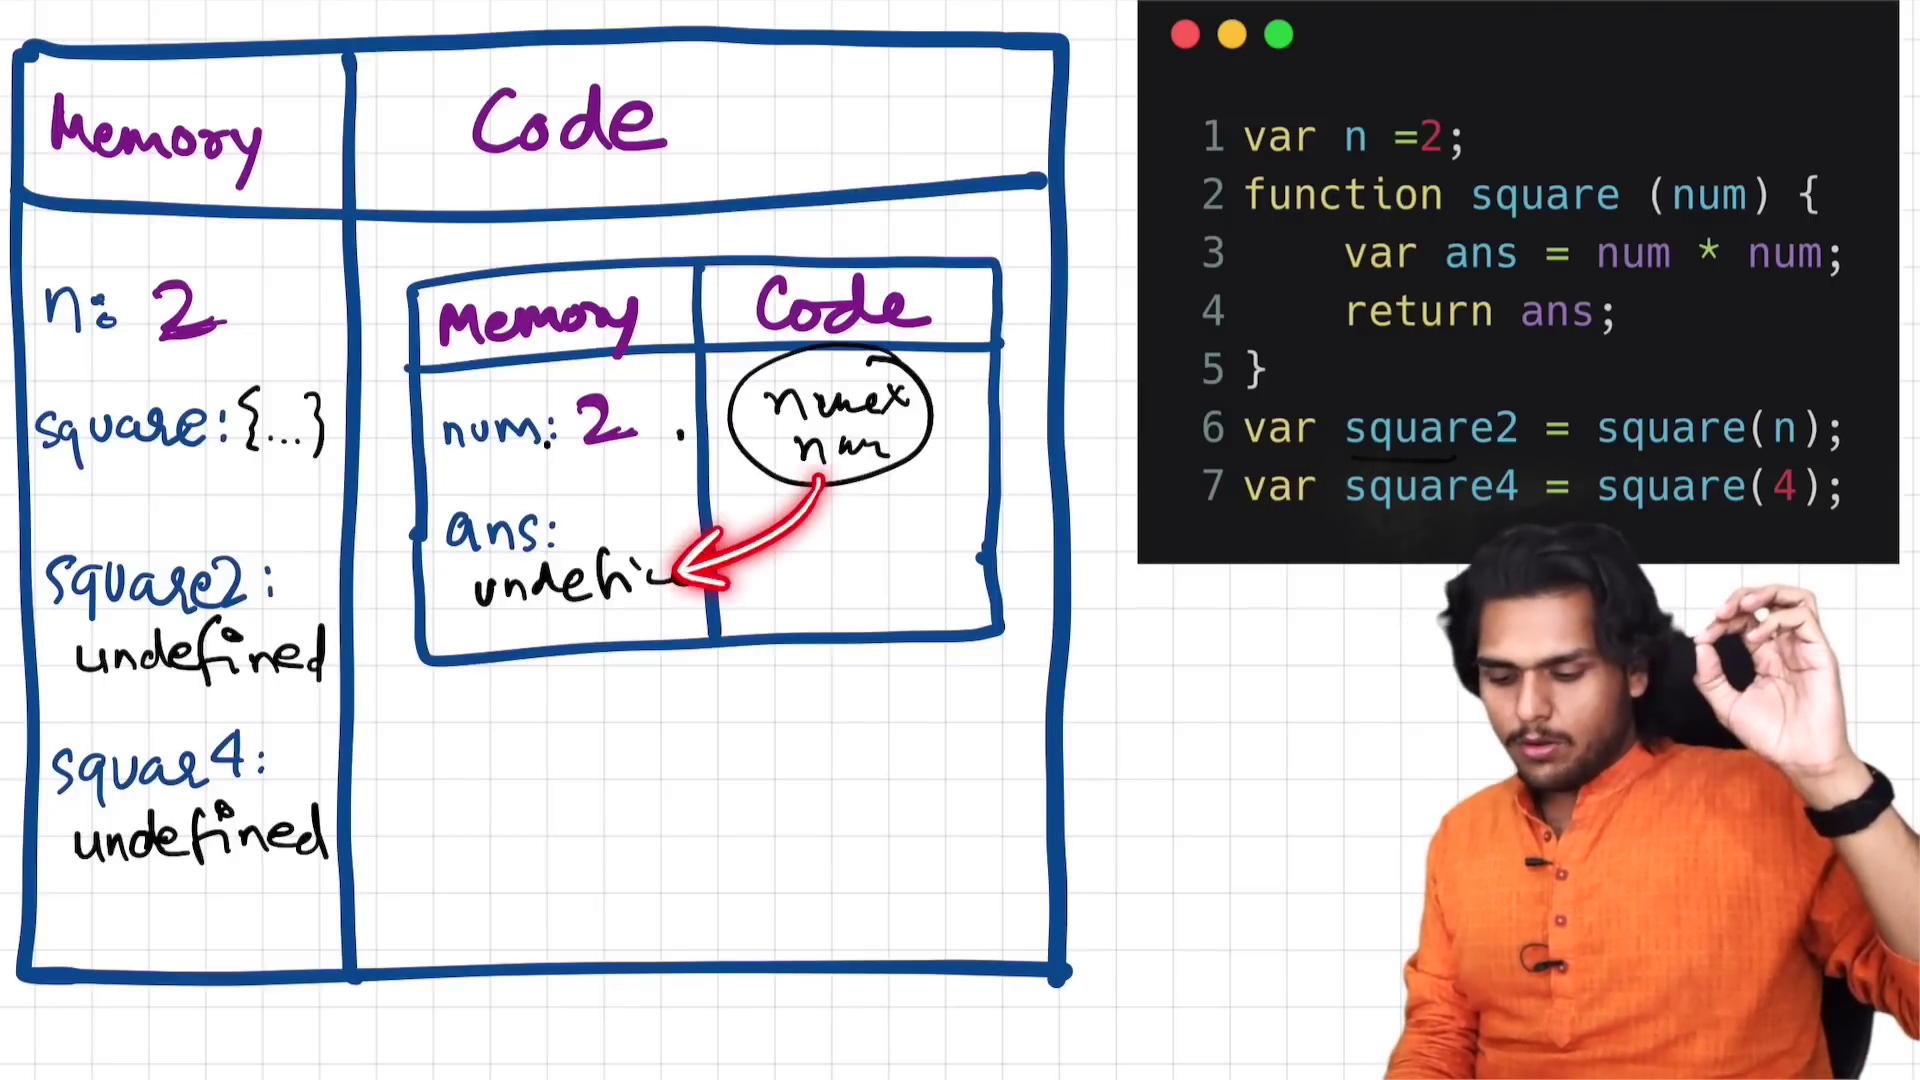 Memory
Code
n: 2
square:{...}
square2:
undefined
squar4:
undefined
Memory
Code
num: 2
num x
num
ans:
1 var n =2;
2 function square (num) {
3 var ans = num * num;
4 return ans;
5 }
6 var square2 = square(n);
7 var square4 = square(4);